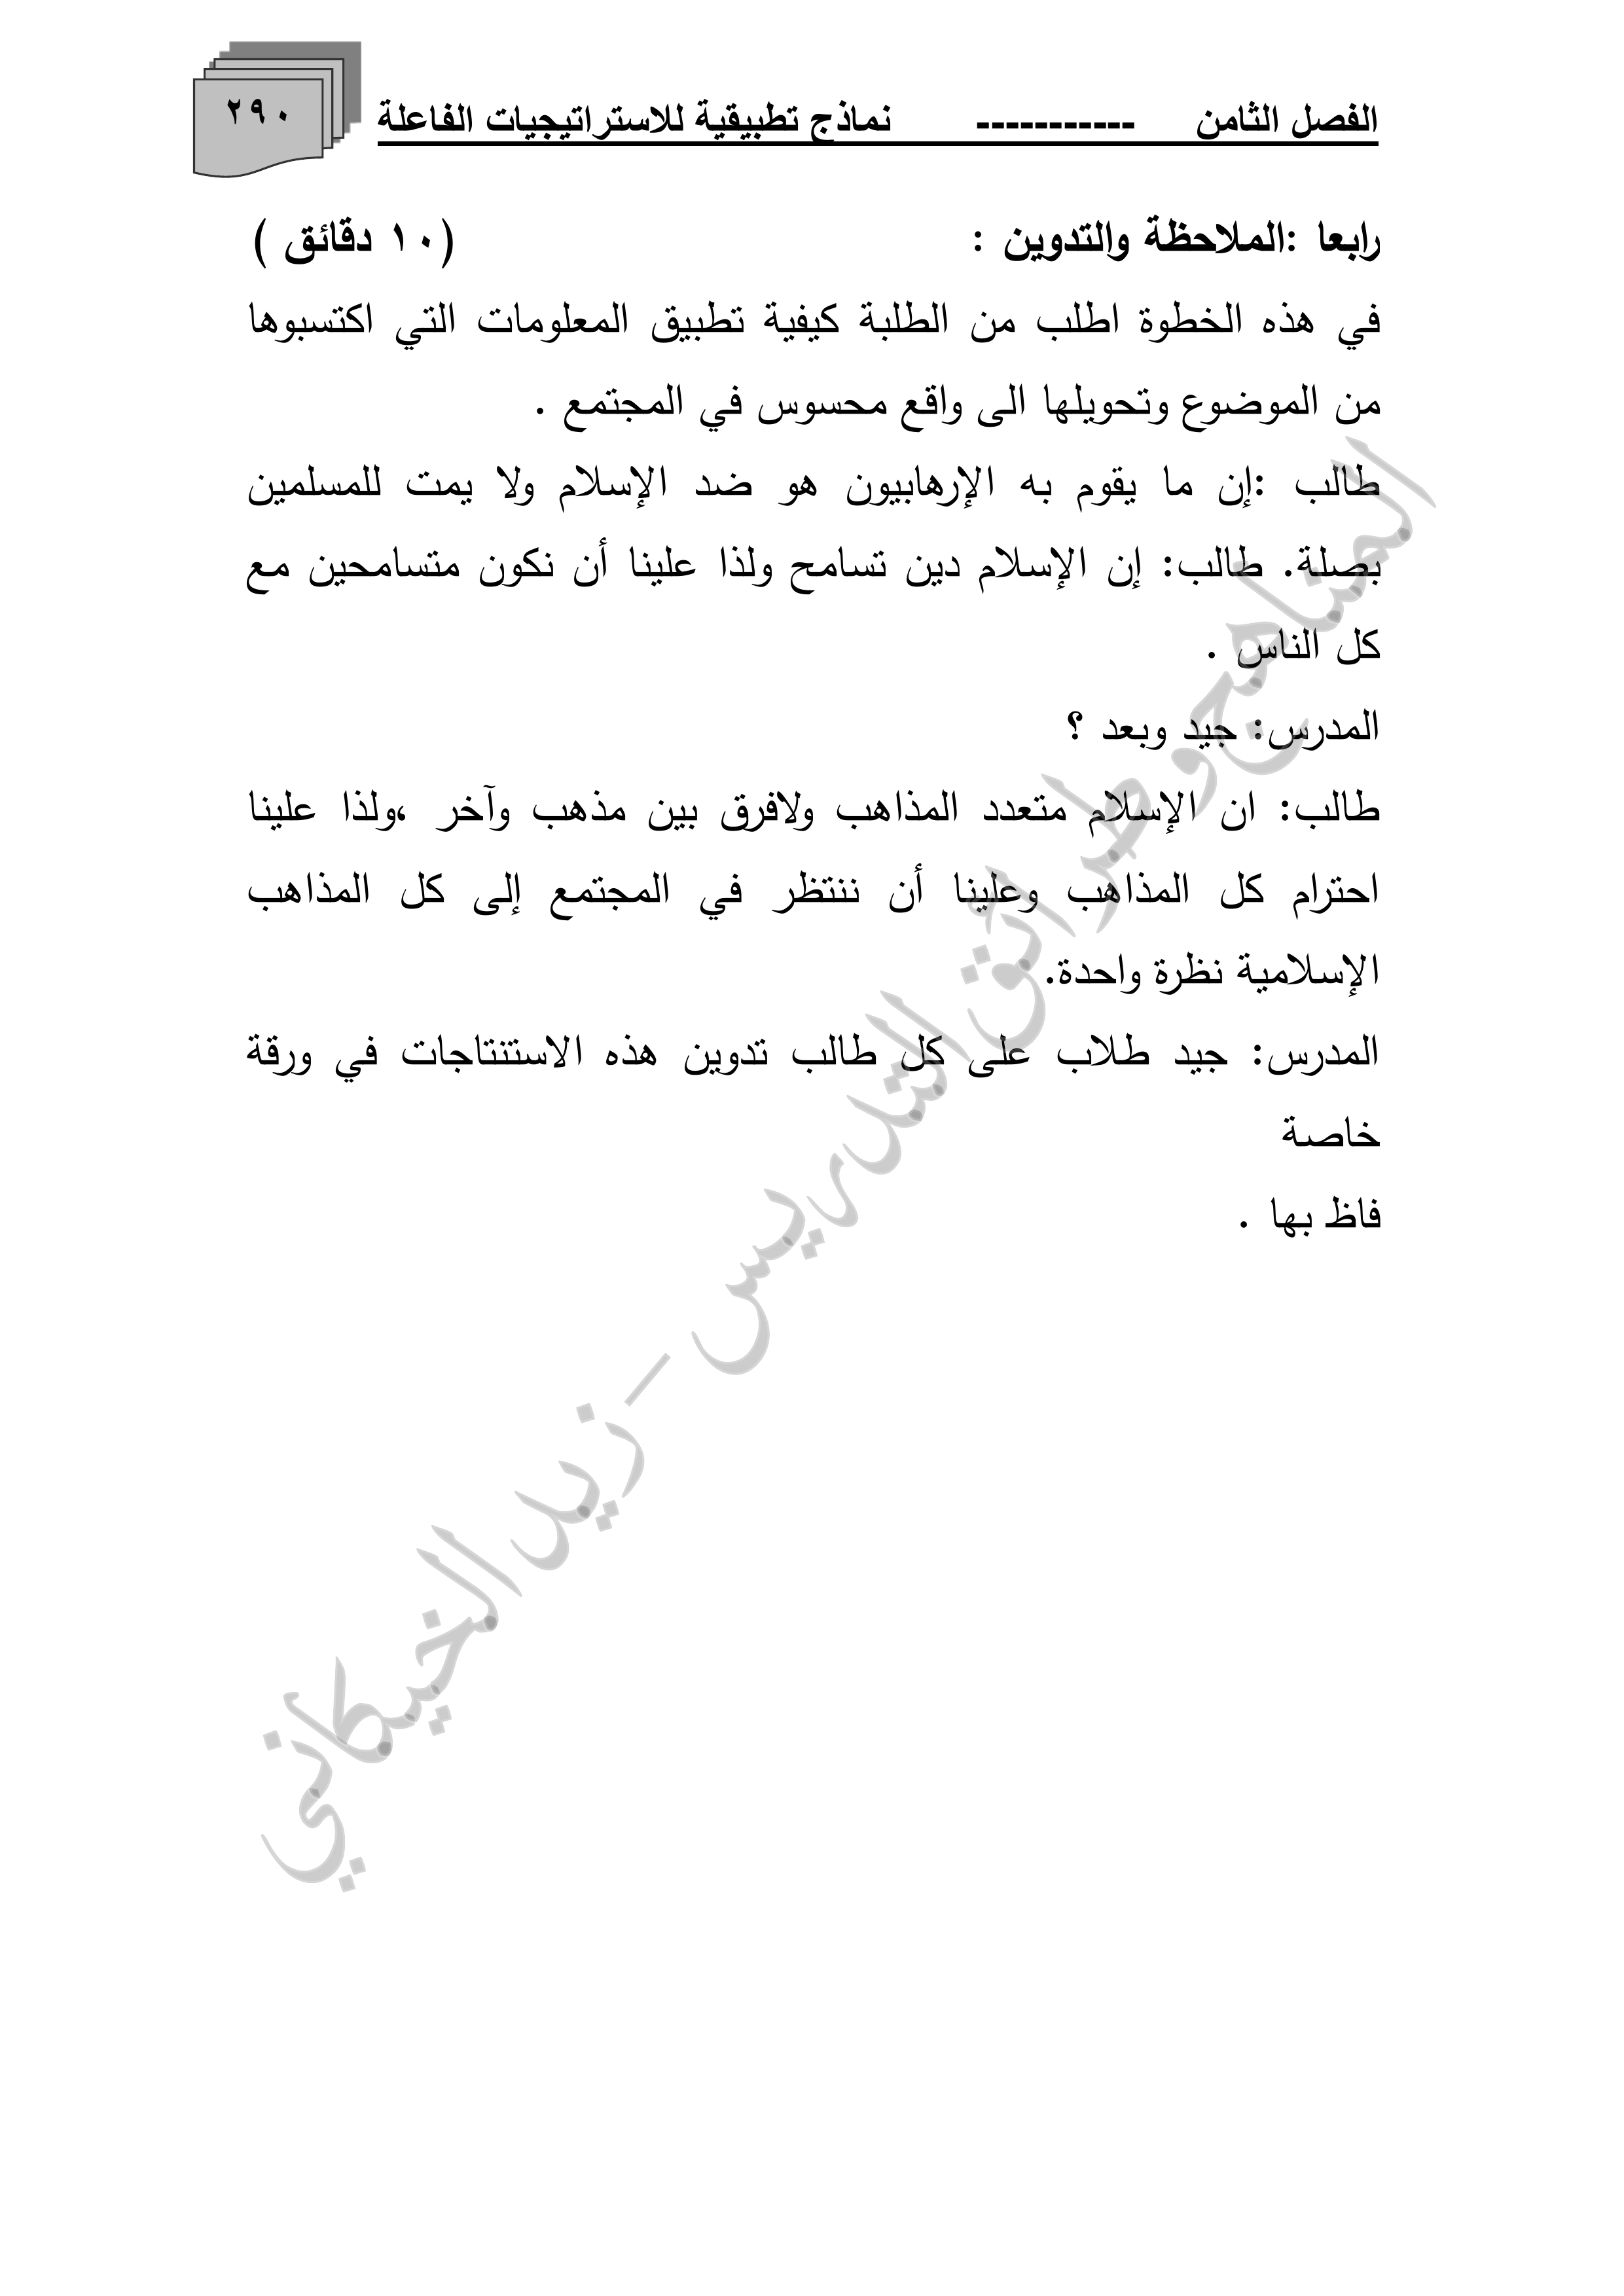 الفصل الثامن ----------- نماذج تطبيقية للاستراتيجيات الفاعلة ٢٩٠
رابعا :الملاحظة والتدوين : (١٠ دقائق )
في هذه الخطوة اطلب من الطلبة كيفية تطبيق المعلومات التي اكتسبوها
من الموضوع وتحويلها الى واقع محسوس في المجتمع .
طالب :إن ما يقوم به الإرهابيون هو ضد الإسلام ولا يمت للمسلمين
بصلة. طالب: إن الإسلام دين تسامح ولذا علينا أن نكون متسامحين مع
كل الناس .
المدرس: جيد وبعد ؟
طالب: ان الإسلام متعدد المذاهب ولافرق بين مذهب وآخر ،ولذا علينا
احترام كل المذاهب وعلينا أن ننتظر في المجتمع إلى كل المذاهب
الإسلامية نظرة واحدة.
المدرس: جيد طلاب على كل طالب تدوين هذه الاستنتاجات في ورقة
خاصة
فاظ بها .
المناهج وطرائق التدريس - زيد الخيكاني